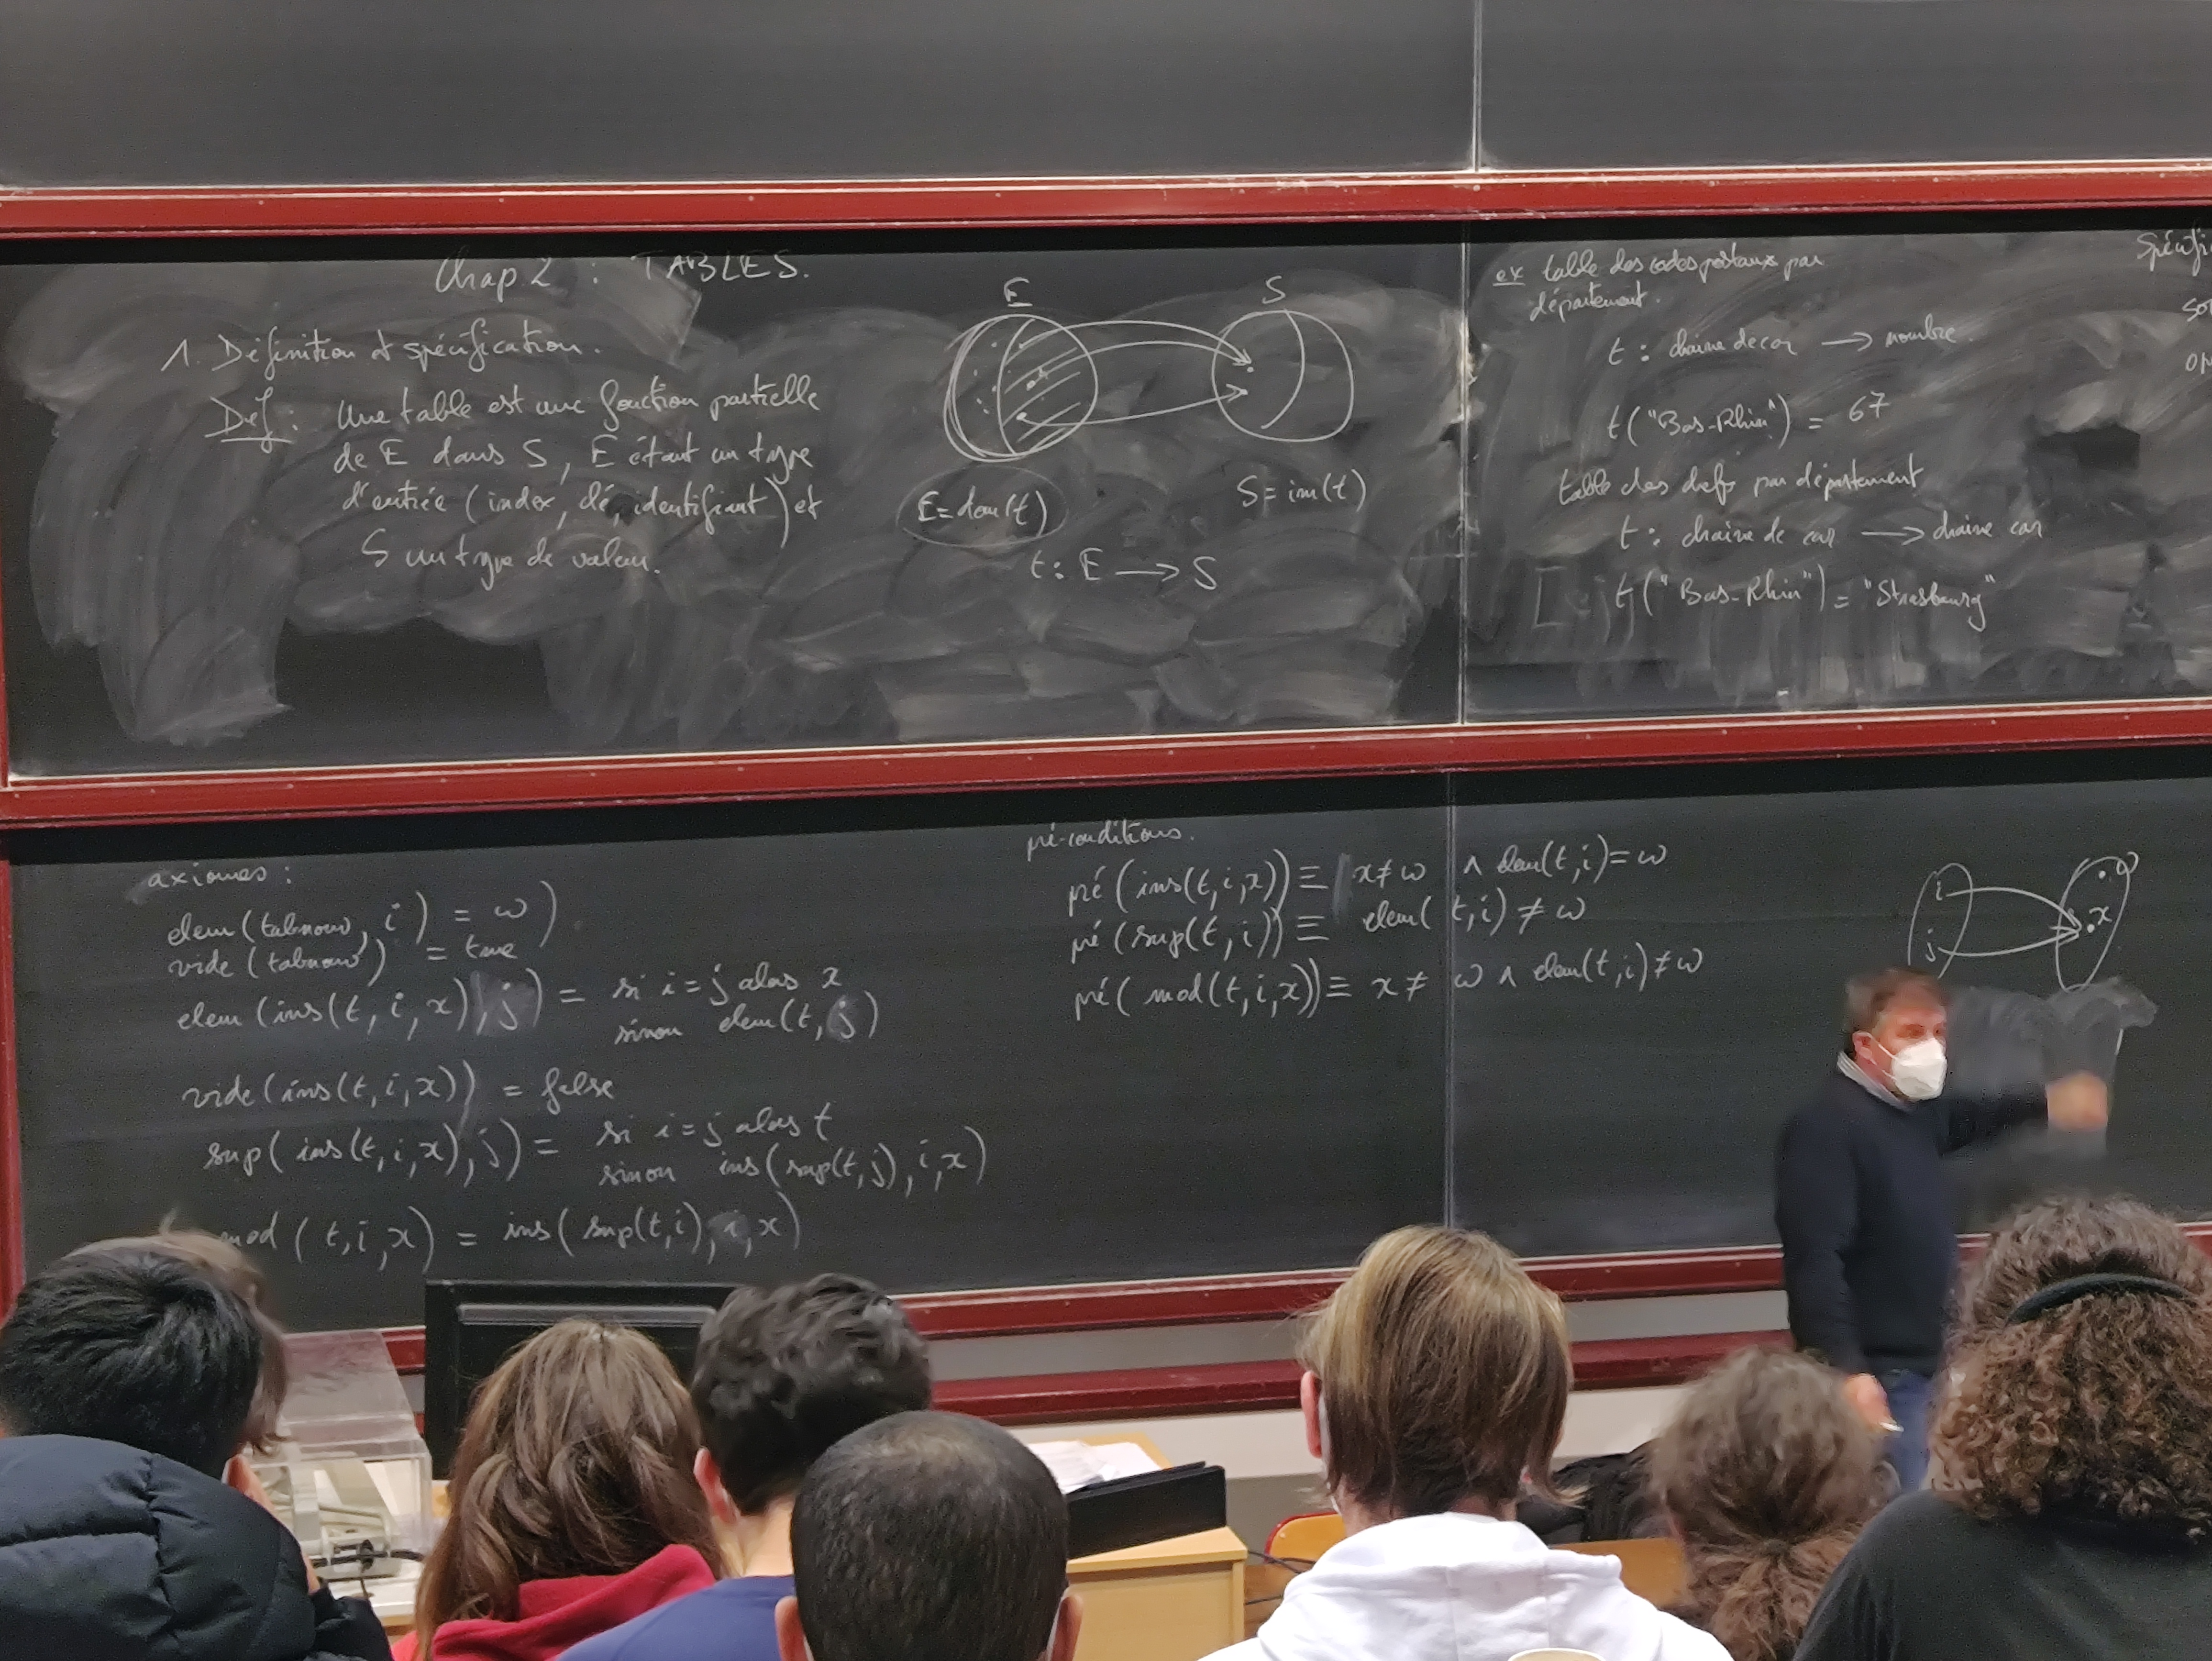 Chap 2 : TABLES.
1. Définition et spécification.
Def : Une table est une fonction partielle
de E dans S, E étant un type
d'entrée (index, clé, identifiant) et
S un type de valeur.
E
S
E = dom(t)
S = im(t)
t : E → S
ex table des codes postaux par
département.
t : chaine de car → nombre.
t("Bas-Rhin") = 67
table des chefs par département
t : chaine de car → chaine car
t("Bas-Rhin") = "Strasbourg"
Spécifi
so
op
axiomes :
elem(tabnouv, i) = ω)
vide(tabnouv) = true
elem(ins(t, i, x), j) = si i = j alors x
sinon elem(t, j)
vide(ins(t, i, x)) = false
sup(ins(t, i, x), j) = si i = j alors t
sinon ins(sup(t, j), i, x)
mod(t, i, x) = ins(sup(t, i), i, x)
pré-conditions.
pré(ins(t, i, x)) ≡ x ≠ ω ∧ elem(t, i) = ω
pré(sup(t, i)) ≡ elem(t, i) ≠ ω
pré(mod(t, i, x)) ≡ x ≠ ω ∧ elem(t, i) ≠ ω
i
j
ω
x